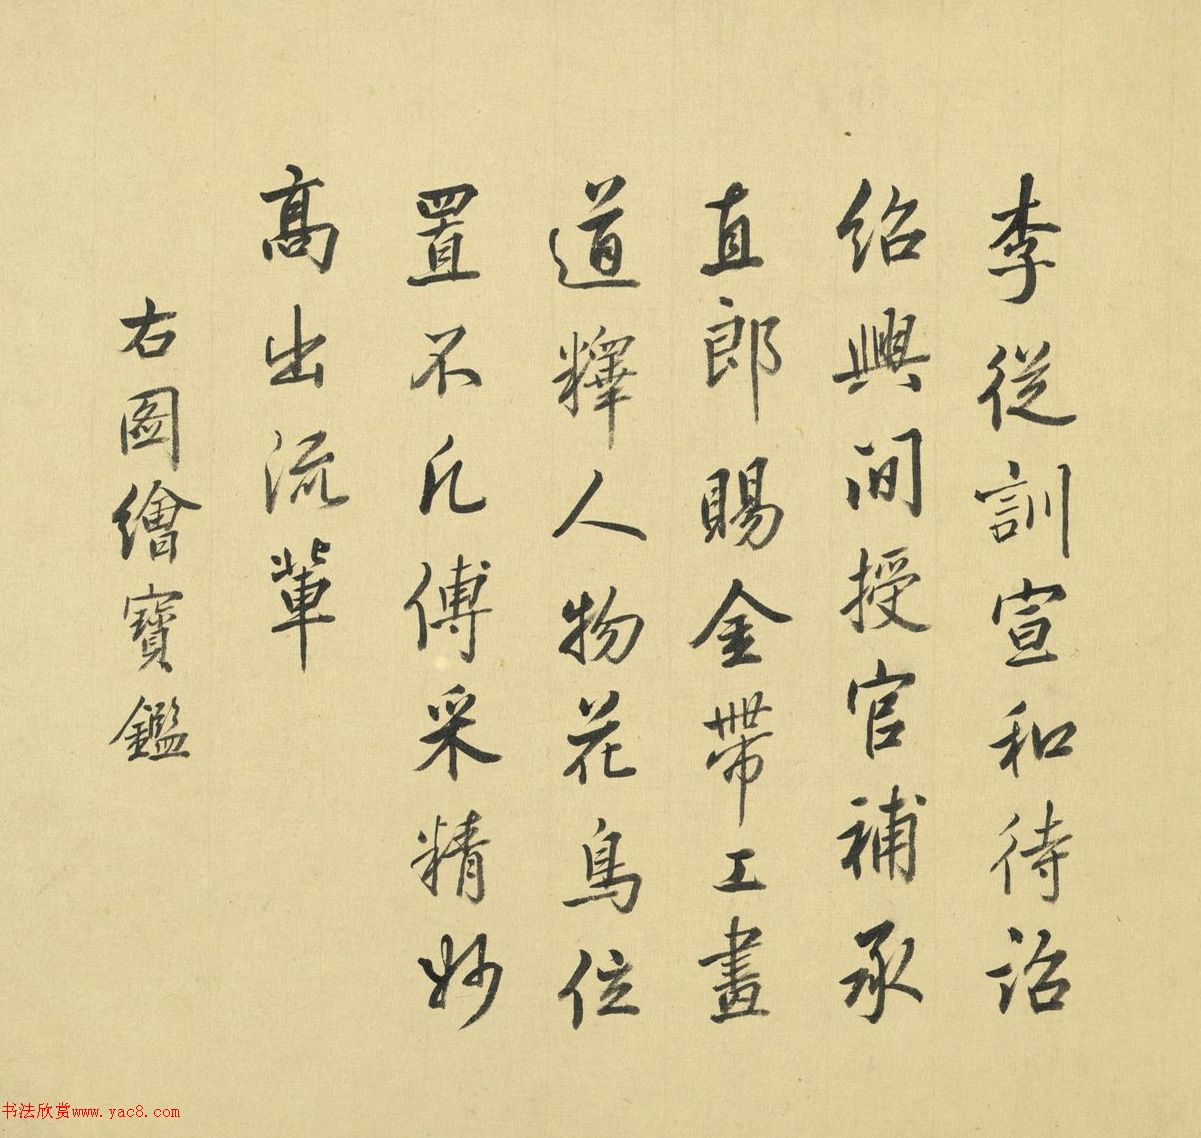 李從訓宣和待詔
紹興間授官補承
直郎賜金帶工畫
道釋人物花鳥位
置不凡傅采精妙
高出流輩
右圖繪寶鑑
书法欣赏www.yac8.com